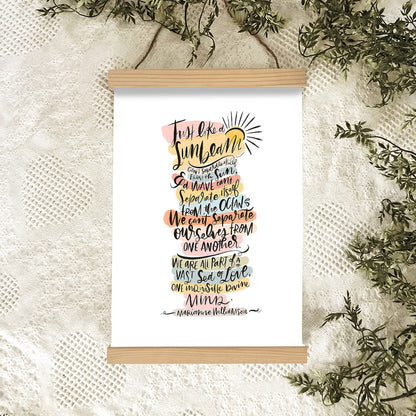 Just like a
Sunbeam
can't separate itself
from the sun,
& a wave can't
separate itself
from the oceans
we can't separate
ourselves from
one another.
We are all part of a
vast sea of love,
one indivisible divine
mind.
-Marianne Williamson